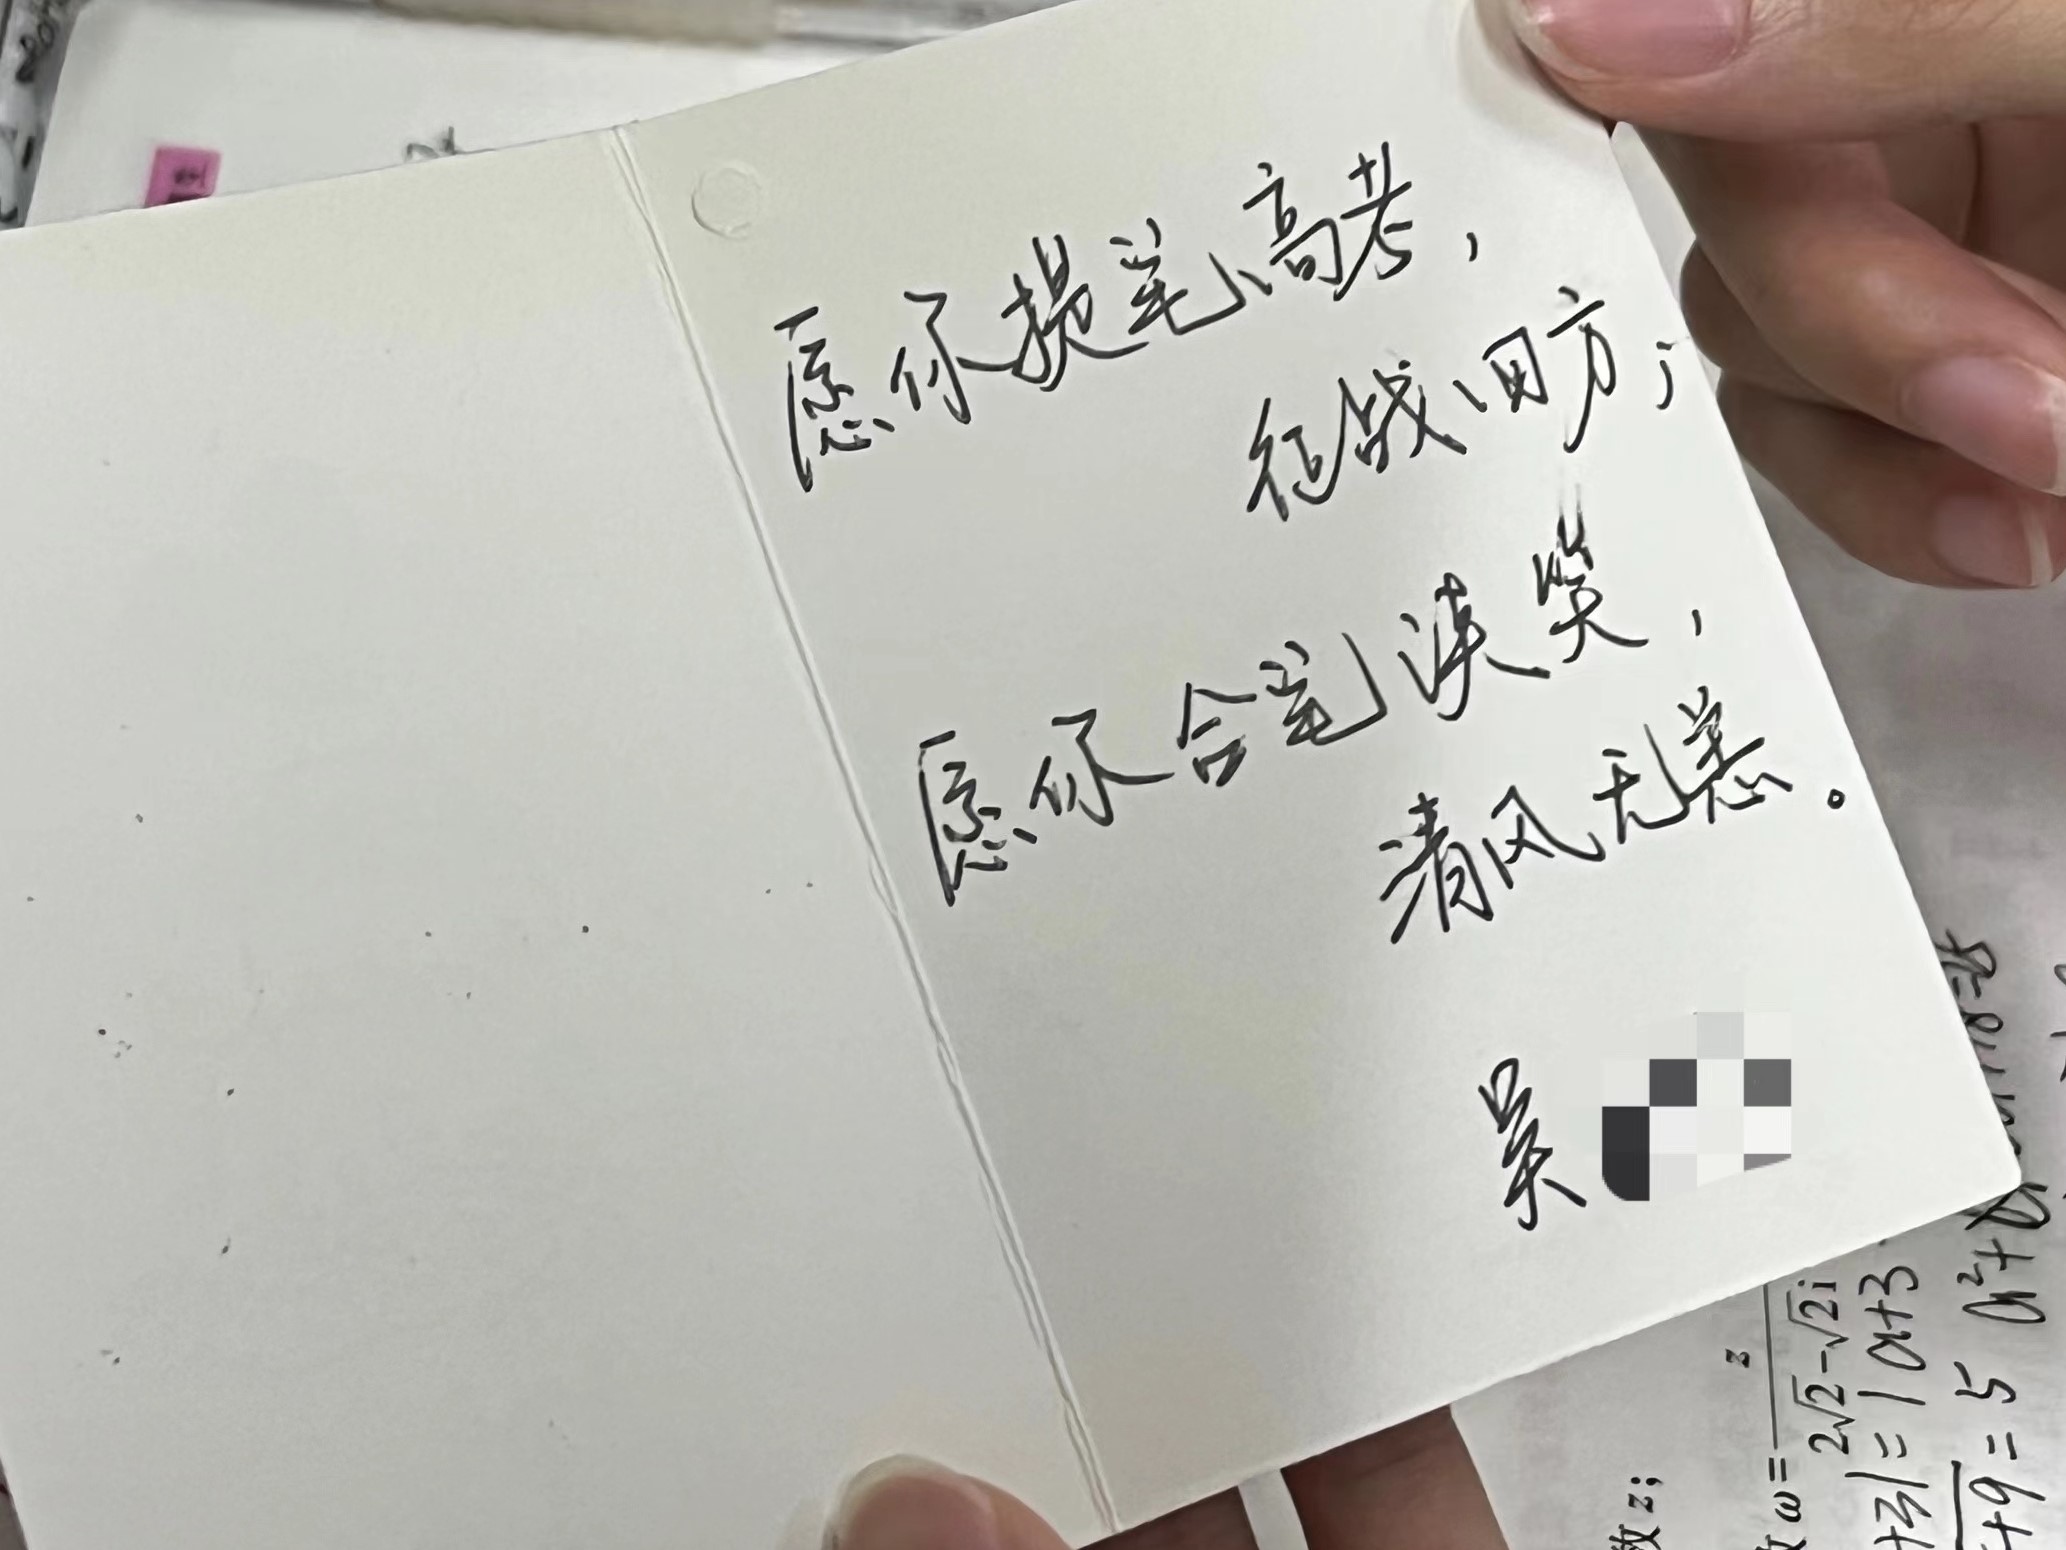 愿你提笔高考，
征战四方；
愿你合笔谈笑，
清风无恙。
吴
数 z；
ω=
z
2√2-√2i
+3|=|a+3
+9=5 a²+